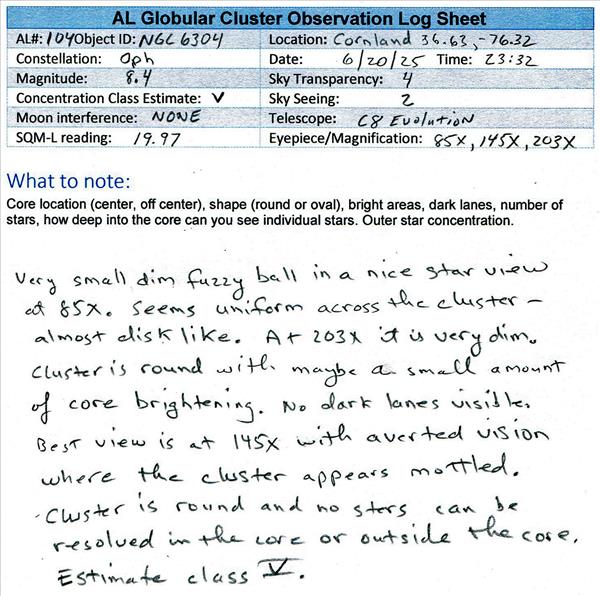 AL Globular Cluster Observation Log Sheet
AL#: 104 Object ID: NGC 6304 Location: Cornland 36.63, -76.32
Constellation: Oph Date: 6/20/25 Time: 23:32
Magnitude: 8.4 Sky Transparency: 4
Concentration Class Estimate: V Sky Seeing: 2
Moon interference: NONE Telescope: C8 Evolution
SQM-L reading: 19.97 Eyepiece/Magnification: 85X, 145X, 203X
What to note:
Core location (center, off center), shape (round or oval), bright areas, dark lanes, number of
stars, how deep into the core can you see individual stars. Outer star concentration.
Very small dim fuzzy ball in a nice star view
at 85X. Seems uniform across the cluster -
almost disk like. At 203X it is very dim.
Cluster is round with maybe a small amount
of core brightening. No dark lanes visible.
Best view is at 145X with averted vision
where the cluster appears mottled.
Cluster is round and no stars can be
resolved in the core or outside the core.
Estimate class V.